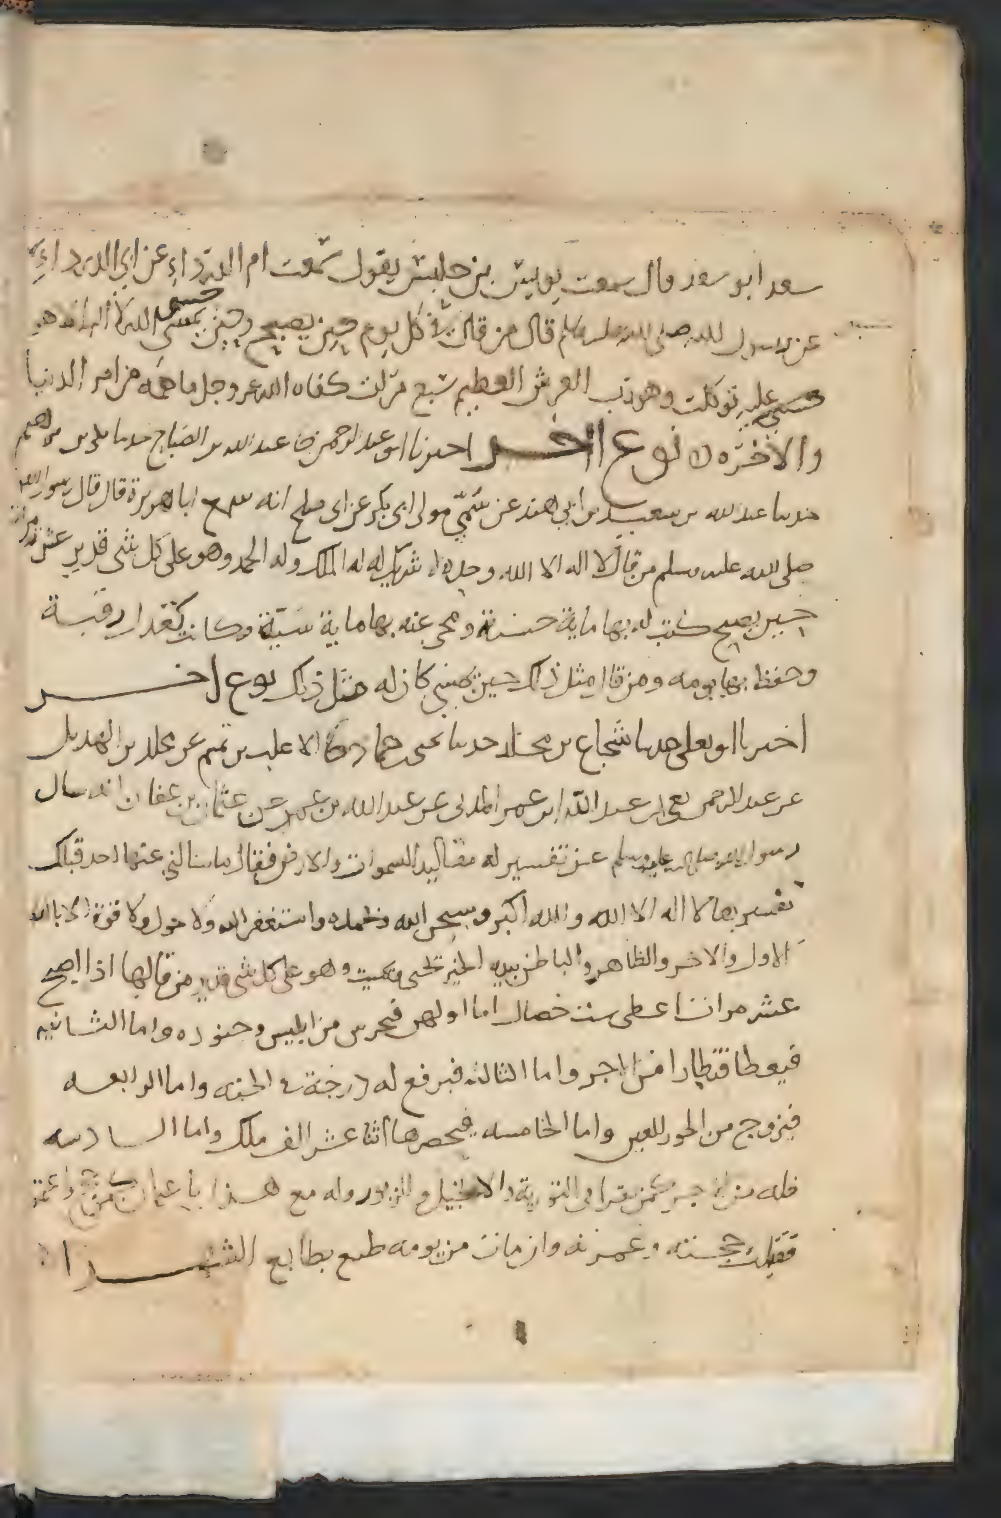 سعد ابو سعد قال سمعت يونس بن حلبس يقول سمعت ام الدرداء عن ابي الدرداء
عن رسول الله صلى الله عليه وسلم قال من قال في كل يوم حين يصبح وحين يمسي حسبي الله لا اله الا هو
عليه توكلت وهو رب العرش العظيم سبع مرات كفاه الله عز وجل ما همه من امر الدنيا
والاخره نوع اخر اخبرنا ابو عبد الرحمن عبد الله بن الصباح حدثنا مكي بن ابراهيم
حدثنا عبد الله بن سعيد بن ابي هند عن سمي مولى ابي بكر عن ابي صالح انه سمع ابا هريرة قال قال رسول الله
صلى الله عليه وسلم من قال لا اله الا الله وحده لا شريك له له الملك وله الحمد وهو على كل شي قدير عشر مرات
حين يصبح كتب له بها ماية حسنة ومحي عنه بها ماية سيئة وكانت كعدل رقبة
وحفظ بها يومه ومن قال مثل ذلك حين يمسي كان له مثل ذلك نوع اخر
اخبرنا ابو يعلى حدثنا شجاع بن مخلد حدثنا يحيى بن حماد الاغلب بن تميم عن مخلد بن الهذيل
عن عبد الرحمن يعني ابن عبد الله بن عمر المدني عن عبد الله بن عمر عن عثمان بن عفان انه سال
رسول الله صلى الله عليه وسلم عن تفسير له مقاليد السموات والارض فقال ما سالني عنها احد قبلك
تفسيرها لا اله الا الله والله اكبر وسبحن الله وبحمده واستغفر الله ولا حول ولا قوة الا بالله
الاول والاخر والظاهر والباطن بيده الخير يحيي ويميت وهو على كل شي قدير من قالها اذا اصبح
عشر مرات اعطي ست خصال اما اولهن فيحرس من ابليس وجنوده واما الثانيه
فيعطا قنطارا من الاجر واما الثالثه فيرفع له درجة في الجنه واما الرابعه
فيزوج من الحور العين واما الخامسه فيحضرها اثنا عشر الف ملك واما السادسه
فله من الاجر كمن قرا التورية والانجيل والزبور وله مع هذا يا عثمان كمن حج واعتمر
فقبلت حجته وعمرته وان مات من يومه طبع بطابع الشهدا